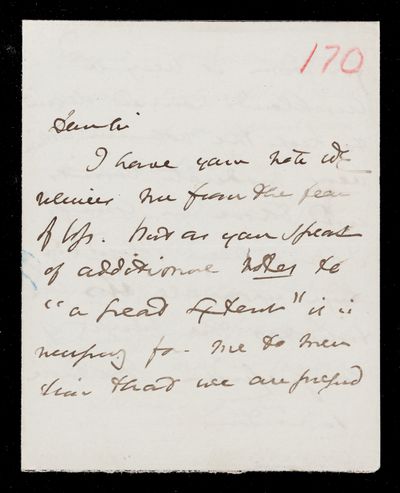 170
Dear Sir
I have your note wh
relieves me from the fear
of loss. But as you speak
of additional notes to
"a great extent" it is
necessary for me to men
tion that we are prepared